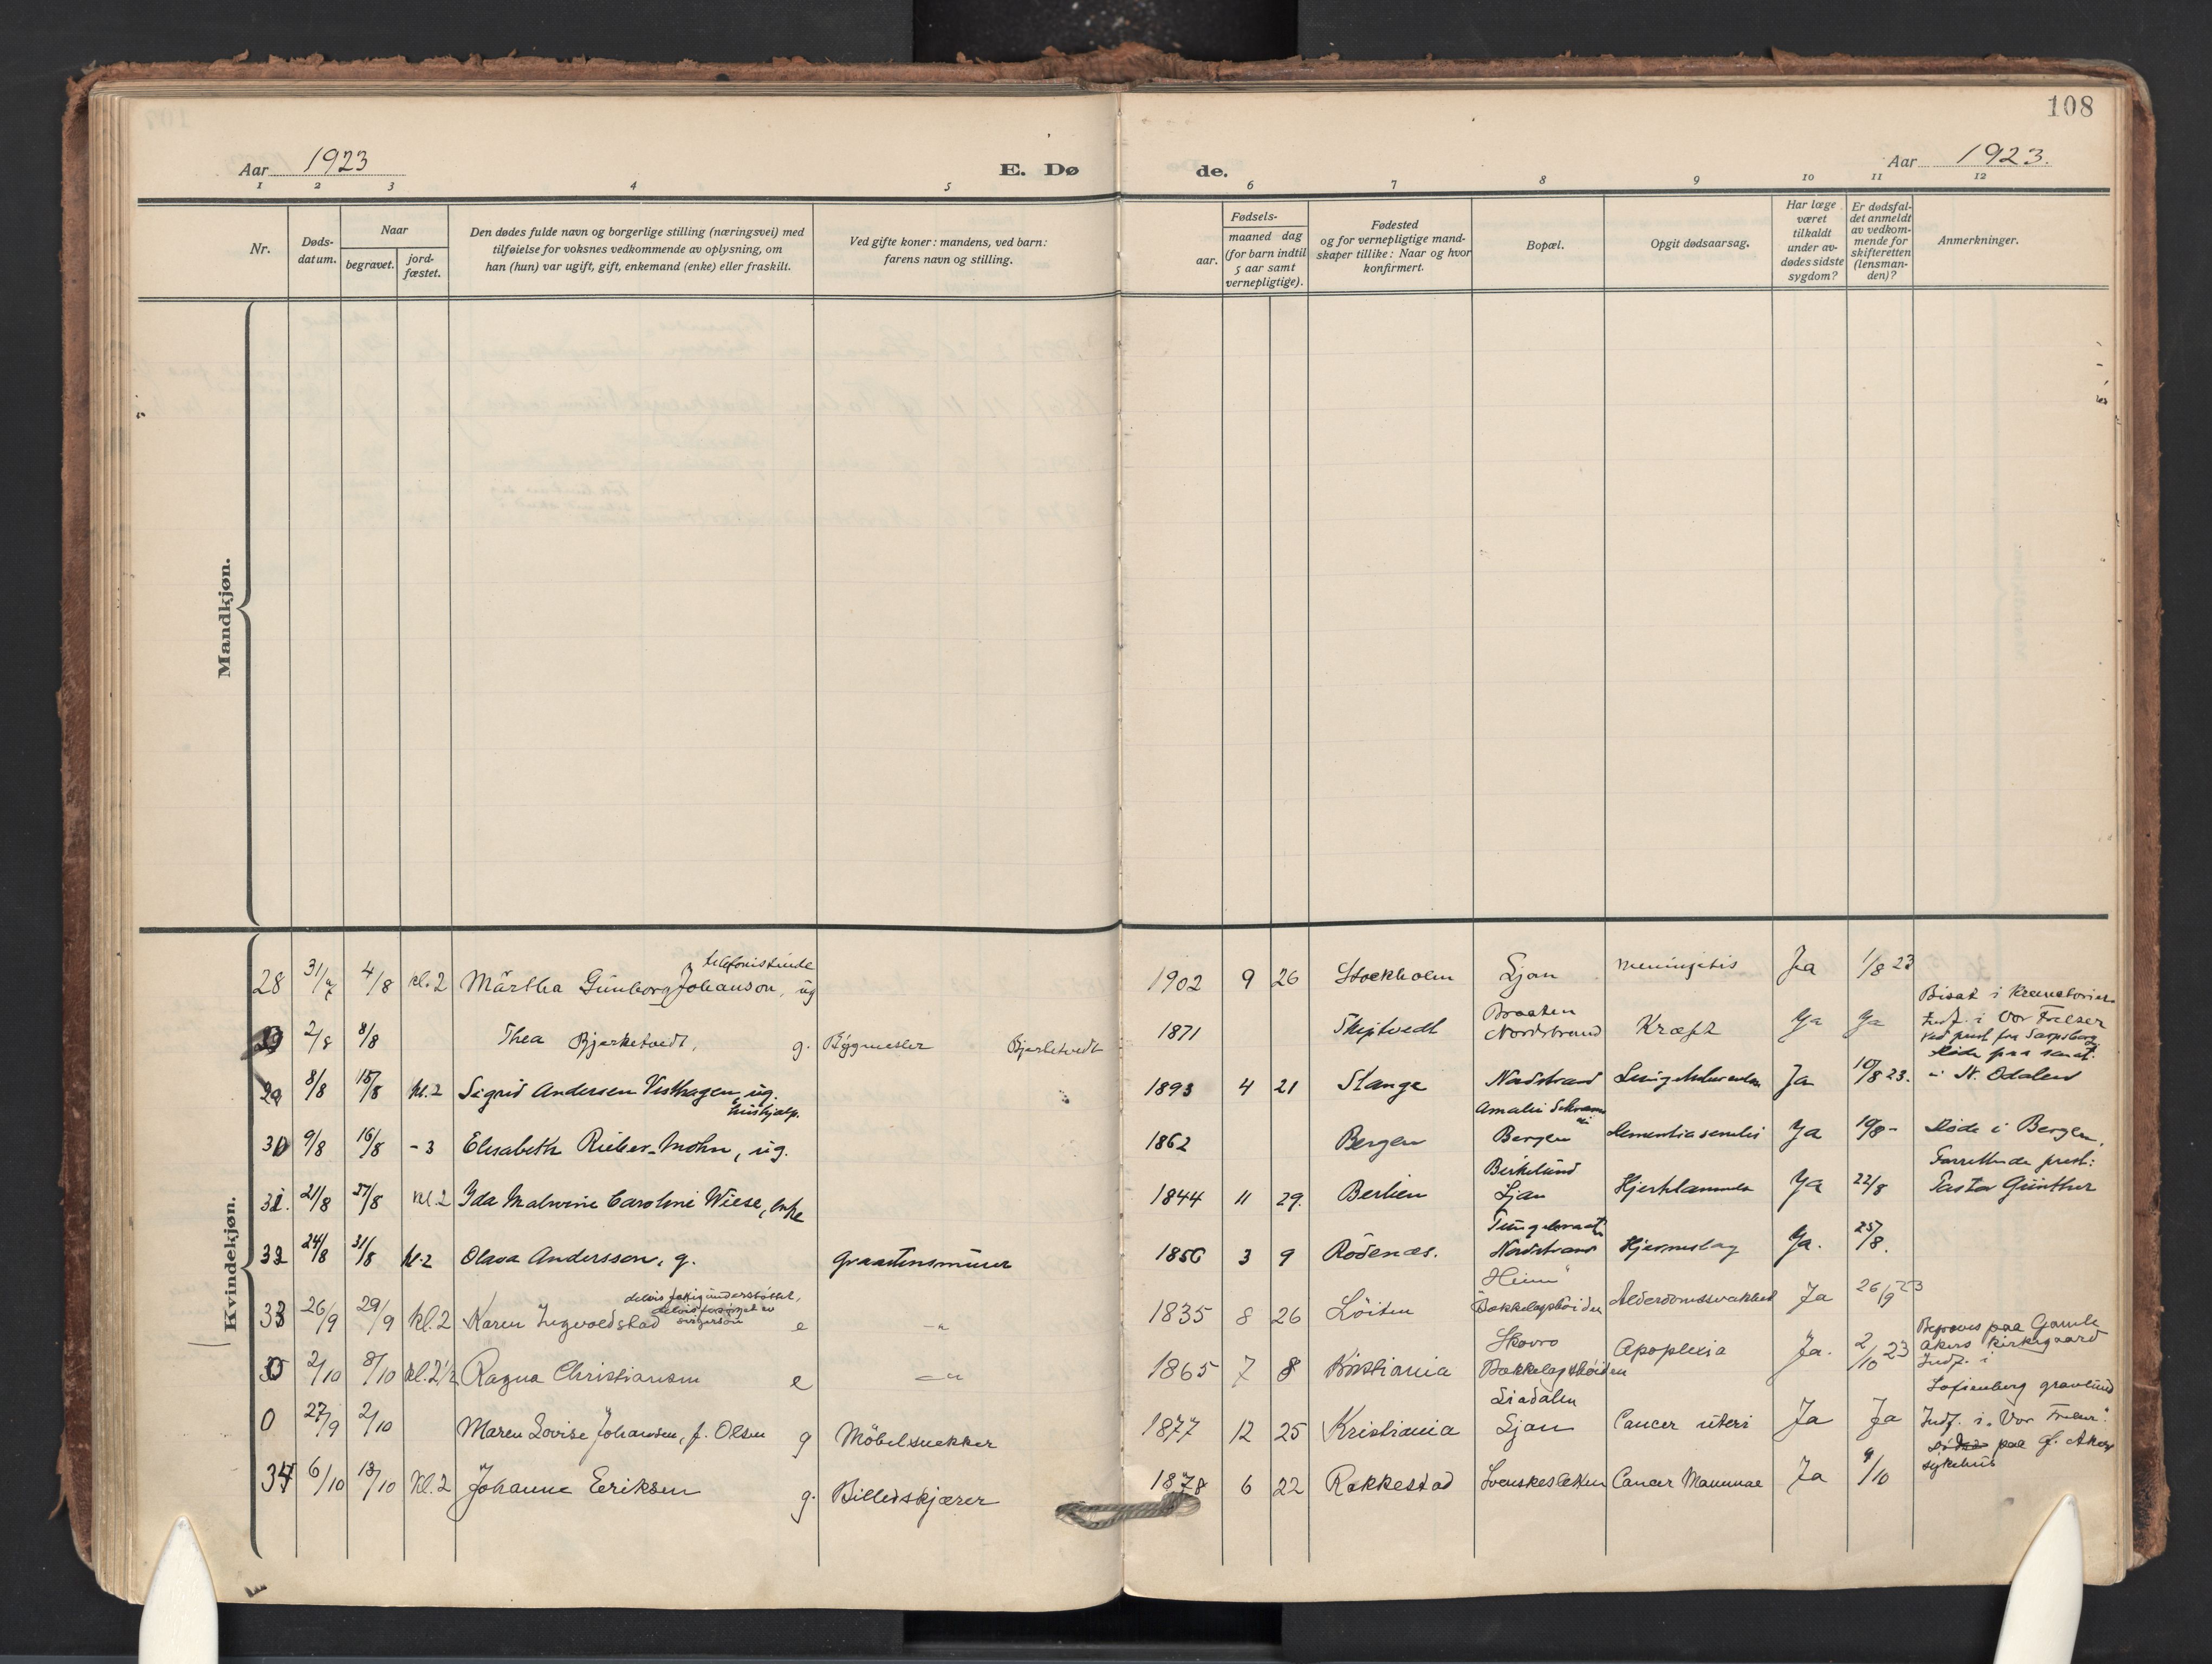 108
Aar 1923
E. Dø
de.
Aar 1923.
1 2 3 4 5 6 7 8 9 10 11 12
Nr.
Døds-
datum.
Naar
begravet.
jord-
fæstet.
Den dødes fulde navn og borgerlige stilling (næringsvei) med
tilføielse for voksnes vedkommende av oplysning, om
han (hun) var ugift, gift, enkemand (enke) eller fraskilt.
Ved gifte koner: mandens, ved barn:
farens navn og stilling.
Fødsels-
aar.
maaned dag
(for barn indtil
5 aar samt
vernepligtige).
Fødested
og for vernepligtige mand-
skaper tillike: Naar og hvor
konfirmert.
Bopæl.
Opgit dødsaarsag.
Har læge
været
tilkaldt
under av-
dødes sidste
sygdom?
Er dødsfal-
det anmeldt
av vedkom-
mende for
skifteretten
(lensman-
den)?
Anmerkninger.
Mandkjøn.
Kvindekjøn.
telefonistinde
28 31/7 4/8 kl.2 Märtha Gunborg Johanson, ug 1902 9 26 Stockholm Ljan meningitis Ja 1/8 23
Bisat i Krematoriet
Braaten
2/8 8/8 Thea Bjerketvedt, g. Bygmester Bjerketvedt 1871 Skiptvedt Nordstrand Kræft Ja Ja Indf. i Vor Frelser
ved prest fra Sarpsborg.
Døde paa sanat.
29 8/8 15/8 kl.2 Sigrid Andersen Visthagen, ug. 1893 4 21 Stange Nordstrand Ja 10/8 23. i N. Odalen
hushjælp.
Amalie Schrams
vei
30 9/8 16/8 - 3 Elisabeth Rieber-Mohn, ug. 1862 Bergen Bergen dementia senilis Ja 10/8 - Døde i Bergen.
Birkelund
Forrettende prest:
31. 21/8 27/8 kl.2 Ida Malwine Caroline Wiese, enke 1844 11 29. Berlin Ljan Ja 22/8 Pastor Günther
32 24/8 31/8 kl.2 Olava Andersson, g. Graastensmurer 1850 3 9 Rödenæs. Nordstrand Hjerneslag Ja. 25/8.
delvis fattigunderstøttet,
delvis forsørget av
svigersøn
Heim"
33 26/9 29/9 kl.2 Karen Ingvoldstad e -"- 1835 8 26 Löiten Bækkelagshöiden Alderdomssvakhet Ja 26/9 23
Begraves paa Gamle
Skovro
Akers kirkegaard
35 2/10 8/10 kl.2 1/2 Ragna Christiansen e -"- 1865 7 8 Kristiania Bækkelagshöiden Apoplexia Ja. 2/10 23 Indf. i
Sofienberg gravlund
Liadalen
0 27/9 2/10 Maren Lovise Johansen, f. Olsen g Möbelsnekker 1877 12 25 Kristiania Ljan Cancer uteri Ja Ja Indf. i "Vor Frelser".
paa f. Aker
sykehus
34 6/10 13/10 kl.2 Johanne Eriksen g. Billedskjærer 1878 6 22 Rakkestad Svenskesletten Cancer Mammae Ja 9/10